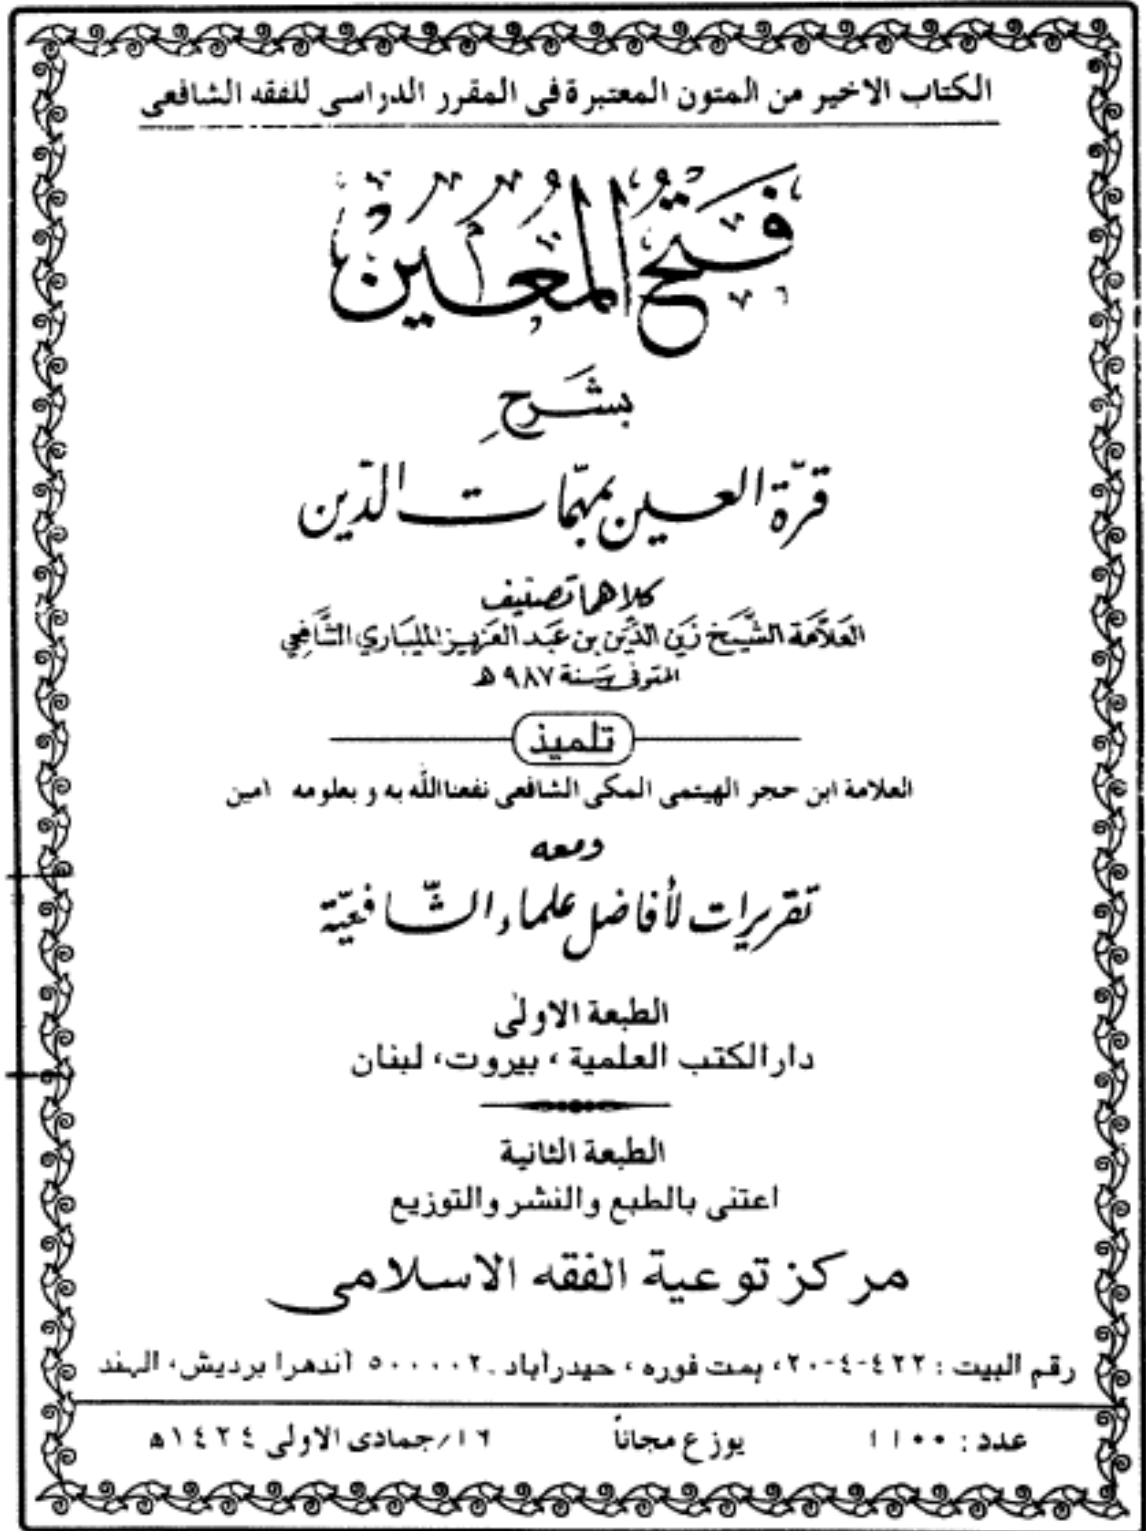 الكتاب الاخير من المتون المعتبرة فى المقرر الدراسى للفقه الشافعى
فَتْحُ المُعَين
بشَرحِ
قرّة العين بمهمّات الدّين
كلاهما تصنيف
العَلاَّمة الشَّيخ زَين الدِّين بن عَبد العَزيز المليبَاري الشَّافِعِي
المتوفى سَنة ٩٨٧ هـ
تلميذ
العلامة ابن حجر الهيتمى المكى الشافعى نفعنا اللّٰه به و بعلومه امين
ومعه
تقريرات لأفاضل علماء الشّافعيّة
الطبعة الاولى
دار الكتب العلمية ، بيروت، لبنان
الطبعة الثانية
اعتنى بالطبع والنشر والتوزيع
مركز توعية الفقه الاسلامى
رقم البيت : ٤٢٢-٤-٢٠، بمت فوره ، حيدرآباد ـ ٥٠٠٠٠٢ آندهرا برديش، الهند
عدد : ١١٠٠ يوزع مجاناً ١٦/جمادى الاولى ١٤٢٤ه